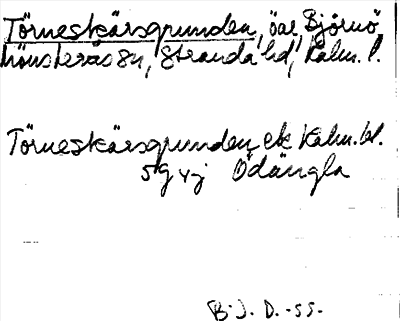 Törneskärsgrunden, öar, Björnö,
Mönsterås sn, Stranda hd, Kalm. l.
Törneskärsgrunden ek Kalm. bl.
5g vj Ödängla
B.J. D. -55.